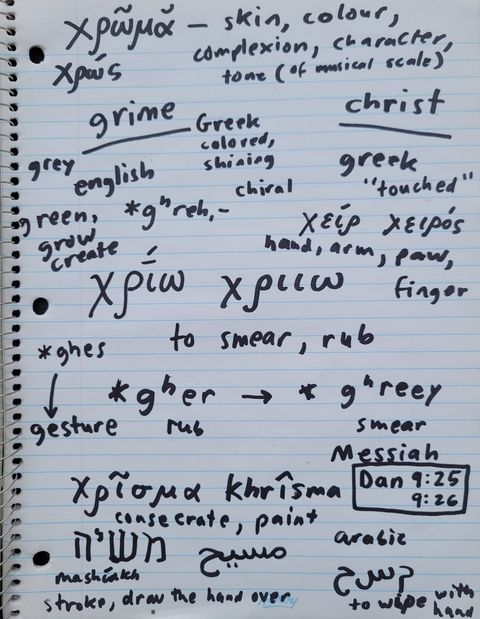 χρῶμᾰ – skin, colour,
complexion, character,
tone (of musical scale)
χρώς
grime
christ
Greek
colored,
shining
grey
english
greek
"touched"
chiral
green,
grow
create
*gʰreh,-
χείρ χειρός
hand, arm, paw,
finger
χρίω χριιω
to smear, rub
*ghes
gesture
*gʰer → *gʰreey
rub
smear
Messiah
Dan 9:25
9:26
χρῖσμα khrîsma
consecrate, paint
משיח
mashiakh
مسيح
arabic
stroke, draw the hand over
to wipe with
hand